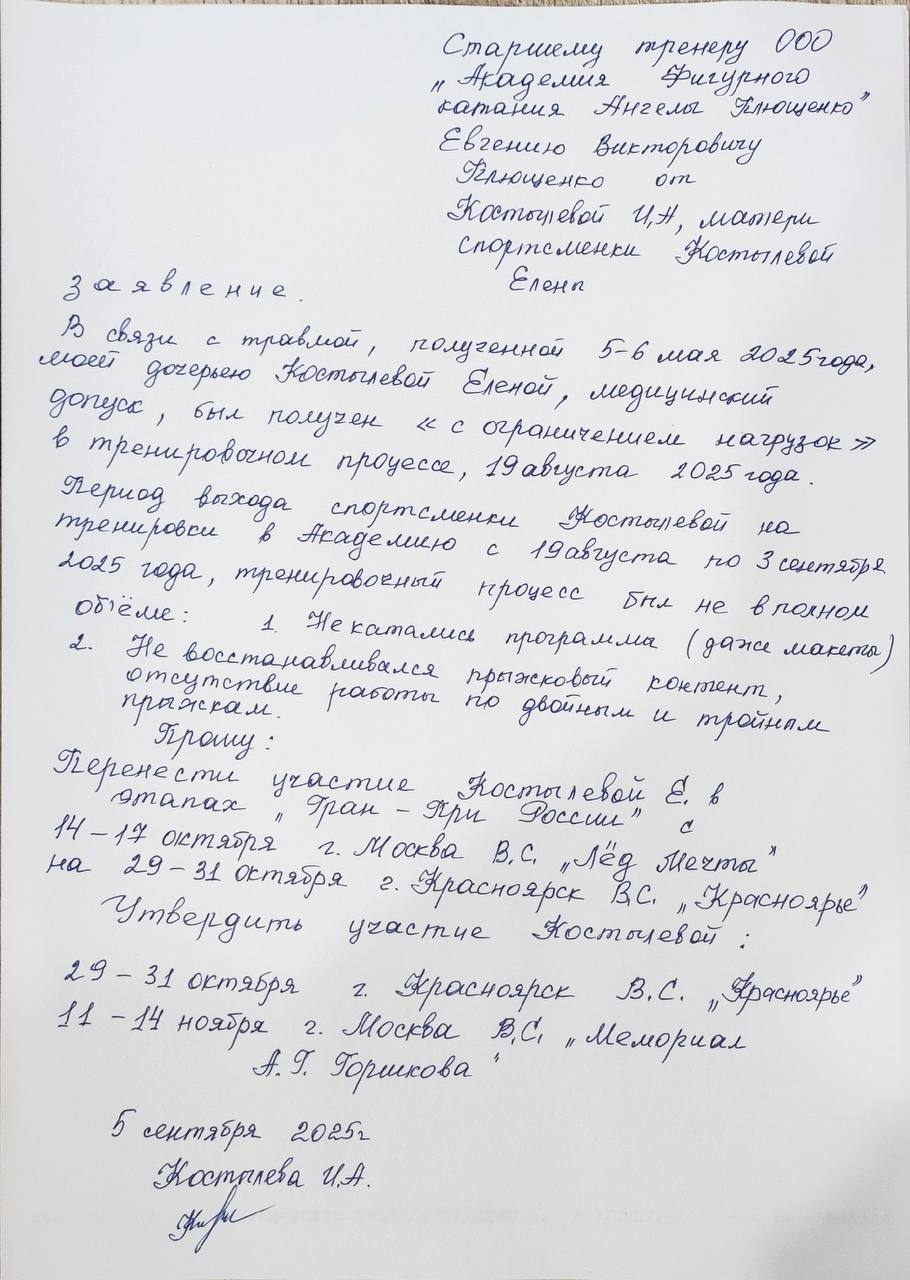 Старшему тренеру ООО
„Академия Фигурного
катания Ангелы Плющенко"
Евгению Викторовичу
Плющенко от
Костылевой И.А, матери
спортсменки Костылевой
Елены
Заявление.
В связи с травмой, полученной 5-6 мая 2025 года,
моей дочерью Костылевой Еленой, медицинский
допуск, был получен «с ограничением нагрузок»
в тренировочном процессе, 19 августа 2025 года.
Период выхода спортсменки Костылевой на
тренировки в Академию с 19 августа по 3 сентября
2025 года, тренировочный процесс был не в полном
объёме: 1. Не катались программы (даже макеты)
2. Не восстанавливался прыжковый контент,
отсутствие работы по двойным и тройным
прыжкам.
Прошу:
Перенести участие Костылевой Е. в
этапах „Гран-При России" с
14-17 октября г. Москва В.С. „Лёд Мечты"
на 29-31 октября г. Красноярск В.С. „Красноярье"
Утвердить участие Костылевой:
29-31 октября г. Красноярск В.С. „Красноярье"
11-14 ноября г. Москва В.С. „Мемориал
А.Г. Горшкова"
5 сентября 2025г
Костылева И.А.